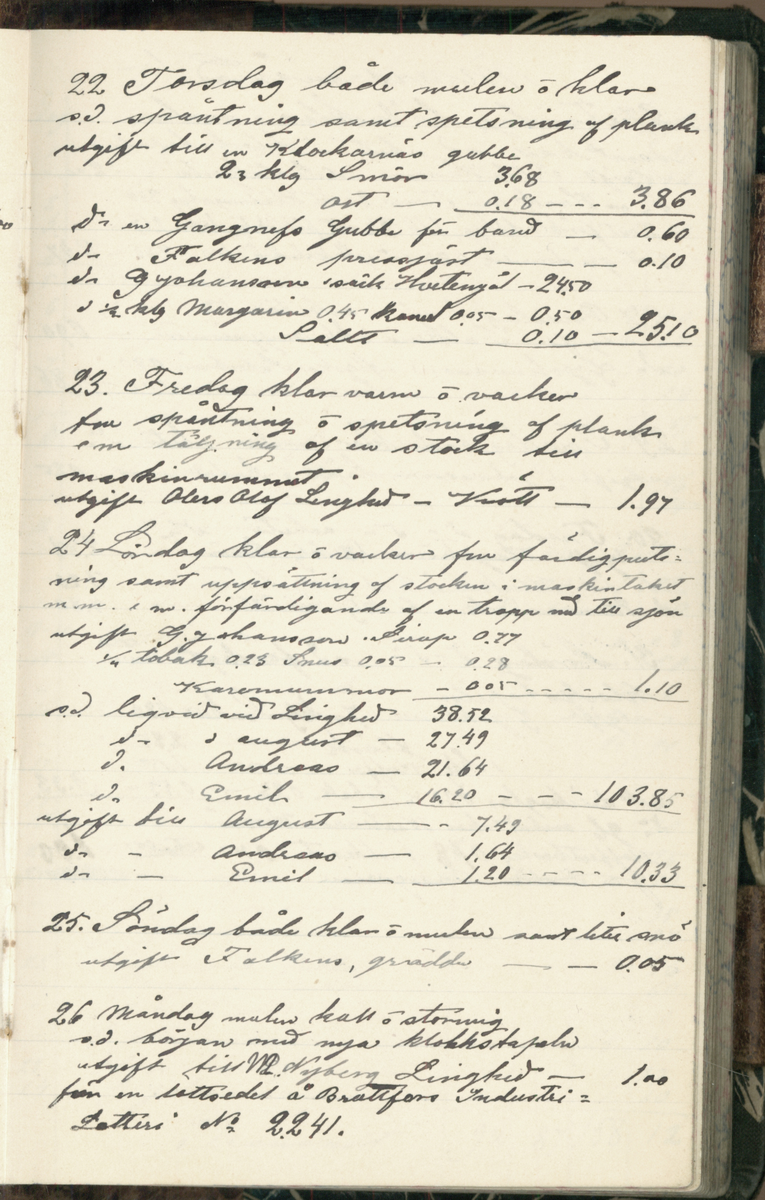 22 Torsdag både mulen ō klar
s.d. spåntning samt spetsning af plank
utgift till en Klockarnäs gubbe
2 3 klg Smör 3.68
ost — 0.18 - - - 3.86
d:o en Gangnefs Gubbe för band — 0.60
d:o Falkens pressjäst — — 0.10
d:o G Johansson 1 säck Hvetemjöl - 24.50
d ½ klg Margarin 0.45 Kanel 0.05 - 0.50
Salts — 0.10 — 25.10
23. Fredag klar varm ō vacker
fm spåntning ō spetsning af plank
e m täljning af en stock till
maskinrummet
utgift Olers Olof Linghed - Kött — 1.97
24 Lördag klar ō vacker fm färdigputs=
ning samt uppsättning af stocken i maskintaket
m.m. e m. förfärdigande af en trapp ned till sjön
utgift G. Johansson. Sirap 0.77
¼ tobak 0.23 Snus 0.05 — 0.28
Karemummor - 0.05 - - - - - 1.10
s.d. liqvid vid Linghed 38.52
d:o d august — 27.49
d. Andreas — 21.64
d. Emil — 16.20 - - - 103.85
utgift till August — - 7.49
d:o - Andreas — 1.64
d:o - Emil — 1.20 - - - - 10.33
25. Söndag både klar ō mulen samt lite snö
utgift Falkens, grädde — — 0.05
26 Måndag mulen kall ō stormig
s.d. början med nya klokkstapeln
utgift till Nyberg Linghed — 1.00
för en lottsedel å Brattfors Industri=
Lotteri No 2241.